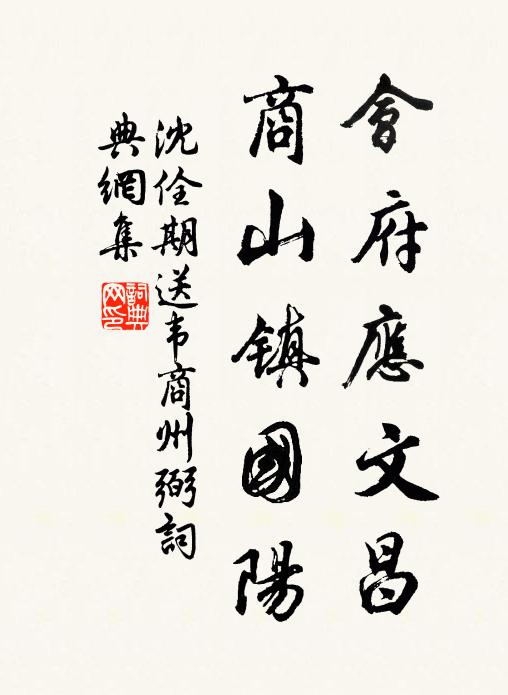 會府應文昌
商山鎮國陽
沈佺期送韦商州弼詞
典網集
詞典
网印